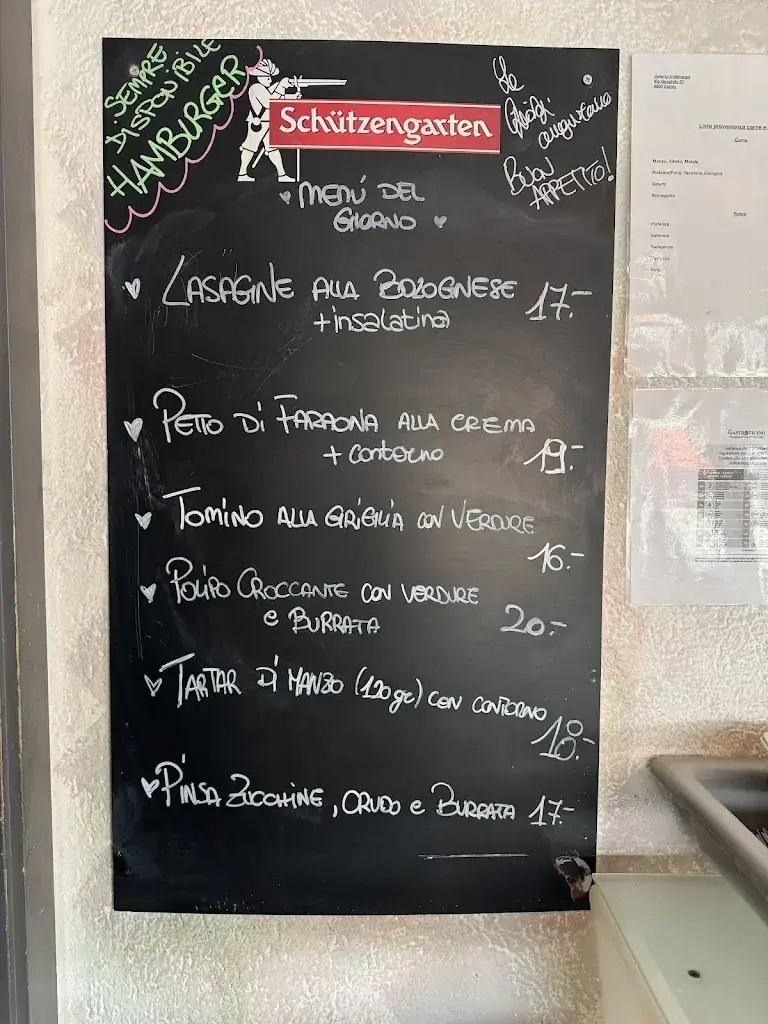 SEMPRE
DISPONIBILE
HAMBURGER
Schützengarten
Le
augurano
BUON
APPETITO!
MENÚ DEL
GIORNO
LASAGNE ALLA BOLOGNESE 17.-
+insalatina
PETTO DI FARAONA ALLA CREMA
+ contorno 19.-
TOMINO ALLA GRIGLIA CON VERDURE
16.-
POLIPO CROCCANTE CON VERDURE
e BURRATA 20.-
TARTAR DI MANZO (120gr) CON CONTORNO
18.-
PINSA ZUCCHINE, CRUDO e BURRATA 17.-
Lista provenienza carne e
Carne
Manzo, Vitello, Maiale
Salumi
Selvaggina
Pesce
Salmone
Gamberoni
GASTROTICINO